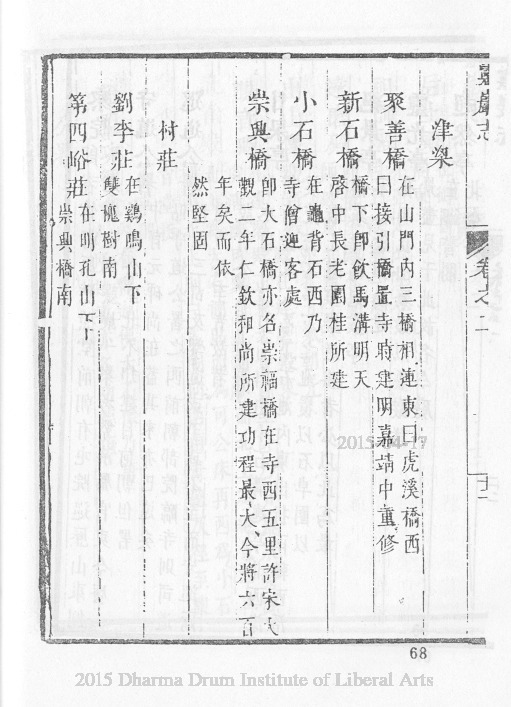 靈巖志 卷之二 十二
津梁
聚善橋 在山門內三橋相連東曰虎溪橋西
曰接引橋置寺時建明嘉靖中重修
新石橋 橋下即飲馬溝明天
啓中長老園桂所建
小石橋 在龜背石西乃
寺僧迎客處
崇興橋 即大石橋亦名崇福橋在寺西五里許宋大
觀二年仁欽和尚所建功程最大今將六百
年矣而依
然堅固
村莊
劉李莊 在鷄鳴山下
雙槐樹南
第四峪莊 在明孔山下
崇興橋南
68
2015-04-17
2015 Dharma Drum Institute of Liberal Arts